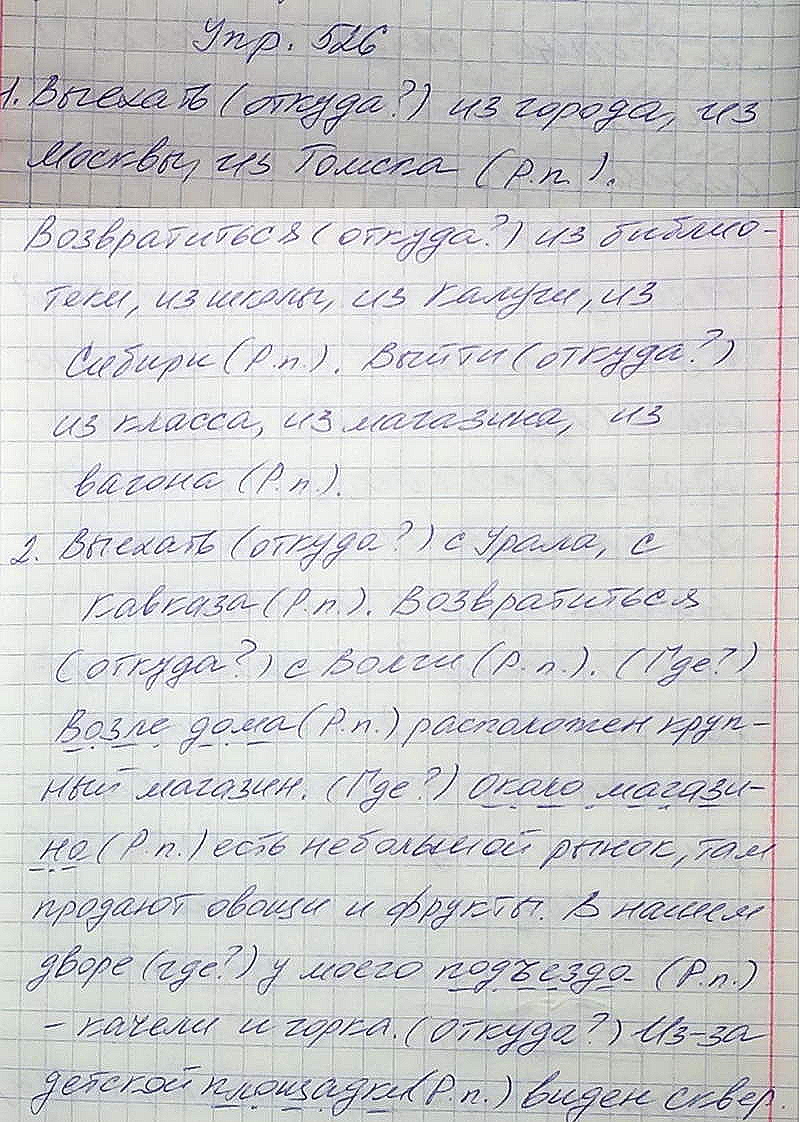 Упр. 526
1. Выехать (откуда?) из города, из
Москвы, из Томска (Р.п.).
Возвратиться (откуда?) из библио-
теки, из школы, из Калуги, из
Сибири (Р.п.). Выйти (откуда?)
из класса, из магазина, из
вагона (Р.п.).
2. Выехать (откуда?) с Урала, с
Кавказа (Р.п.). Возвратиться
(откуда?) с Волги (Р.п.). (Где?)
Возле дома (Р.п.) расположен круп-
ный магазин. (Где?) Около магази-
на (Р.п.) есть небольшой рынок, там
продают овощи и фрукты. В нашем
дворе (где?) у моего подъезда (Р.п.)
- качели и горка. (Откуда?) Из-за
детской площадки (Р.п.) виден сквер.